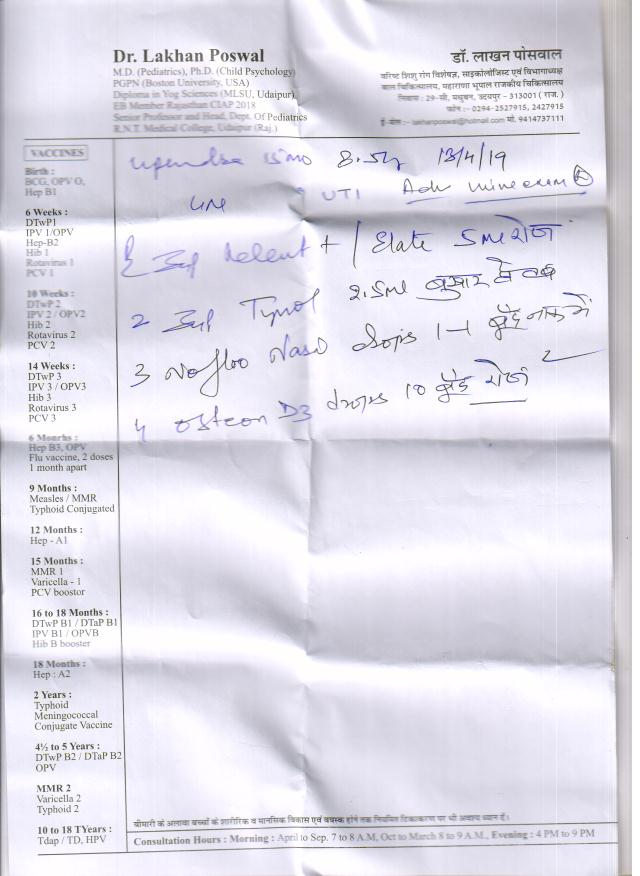 Dr. Lakhan Poswal
M.D. (Pediatrics), Ph.D. (Child Psychology)
PGPN (Boston University, USA)
Diploma in Yog Sciences (MLSU, Udaipur)
EB Member Rajasthan CIAP 2018
Senior Professor and Head, Dept. Of Pediatrics
R.N.T. Medical College, Udaipur (Raj.)
डॉ. लाखन पोसवाल
वरिष्ट शिशु रोग विशेषज्ञ, साइकोलोजिस्ट एवं विभागाध्यक्ष
बाल चिकित्सालय, महाराणा भूपाल राजकीय चिकित्सालय
निवास : 29-सी, मधुबन, उदयपुर - 313001 ( राज. )
फोन : 0294-2527915, 2427915
ई-मेल :- lakhanposwal@hotmail.com मो. 9414737111
13/4/19
UTI Adv
+ / 5ml रोज
2 Syp 2.5ml बुखार
3 Nasal drops 1-1 बूँद नाक में
4 D3 drops 10 बूँद रोज
VACCINES
Birth :
BCG, OPV O,
Hep B1
6 Weeks :
DTwP1
IPV 1/OPV
Hep-B2
Hib 1
Rotavirus 1
PCV 1
10 Weeks :
DTwP 2
IPV 2 / OPV2
Hib 2
Rotavirus 2
PCV 2
14 Weeks :
DTwP 3
IPV 3 / OPV3
Hib 3
Rotavirus 3
PCV 3
6 Months :
Hep B3, OPV
Flu vaccine, 2 doses
1 month apart
9 Months :
Measles / MMR
Typhoid Conjugated
12 Months :
Hep - A1
15 Months :
MMR 1
Varicella - 1
PCV boostor
16 to 18 Months :
DTwP B1 / DTaP B1
IPV B1 / OPVB
Hib B booster
18 Months :
Hep : A2
2 Years :
Typhoid
Meningococcal
Conjugate Vaccine
4½ to 5 Years :
DTwP B2 / DTaP B2
OPV
MMR 2
Varicella 2
Typhoid 2
10 to 18 TYears :
Tdap / TD, HPV
बीमारी के अलावा बच्चों के शारीरिक व मानसिक विकास एवं वयस्क होने तक नियमित टिकाकरण पर भी अवश्य ध्यान दें।
Consultation Hours : Morning : April to Sep. 7 to 8 A.M, Oct to March 8 to 9 A.M., Evening : 4 PM to 9 PM